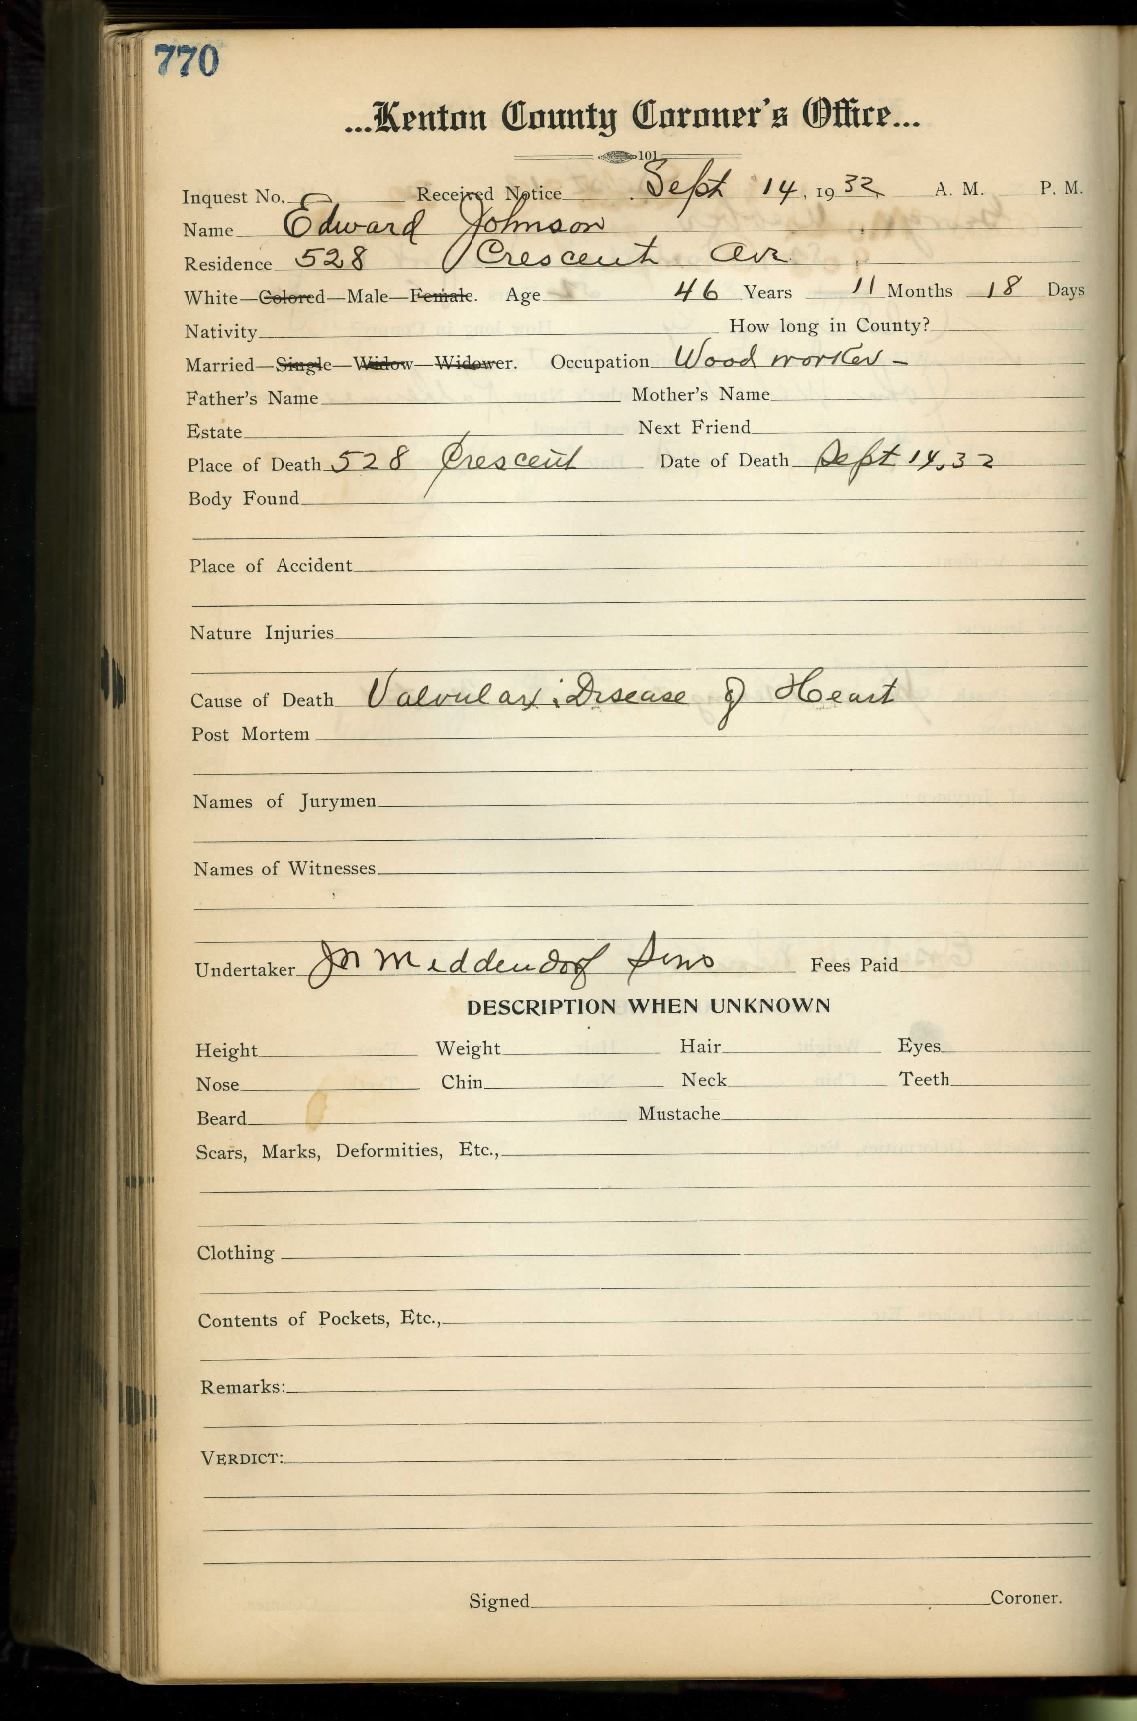 770
...Kenton County Coroner's Office...
101
Inquest No. Received Notice Sept 14, 1932 A. M. P. M.
Name Edward Johnson
Residence 528 Crescent Ave
White—Colored—Male—Female. Age 46 Years 11 Months 18 Days
Nativity How long in County?
Married—Single—Widow—Widower. Occupation Wood worker -
Father's Name Mother's Name
Estate Next Friend
Place of Death 528 Crescent Date of Death Sept 14, 32
Body Found
Place of Accident
Nature Injuries
Cause of Death Valvular Disease of Heart
Post Mortem
Names of Jurymen
Names of Witnesses
Undertaker Jn Meddendorf Sons Fees Paid
DESCRIPTION WHEN UNKNOWN
Height Weight Hair Eyes
Nose Chin Neck Teeth
Beard Mustache
Scars, Marks, Deformities, Etc.,
Clothing
Contents of Pockets, Etc.,
Remarks:
VERDICT:
Signed Coroner.